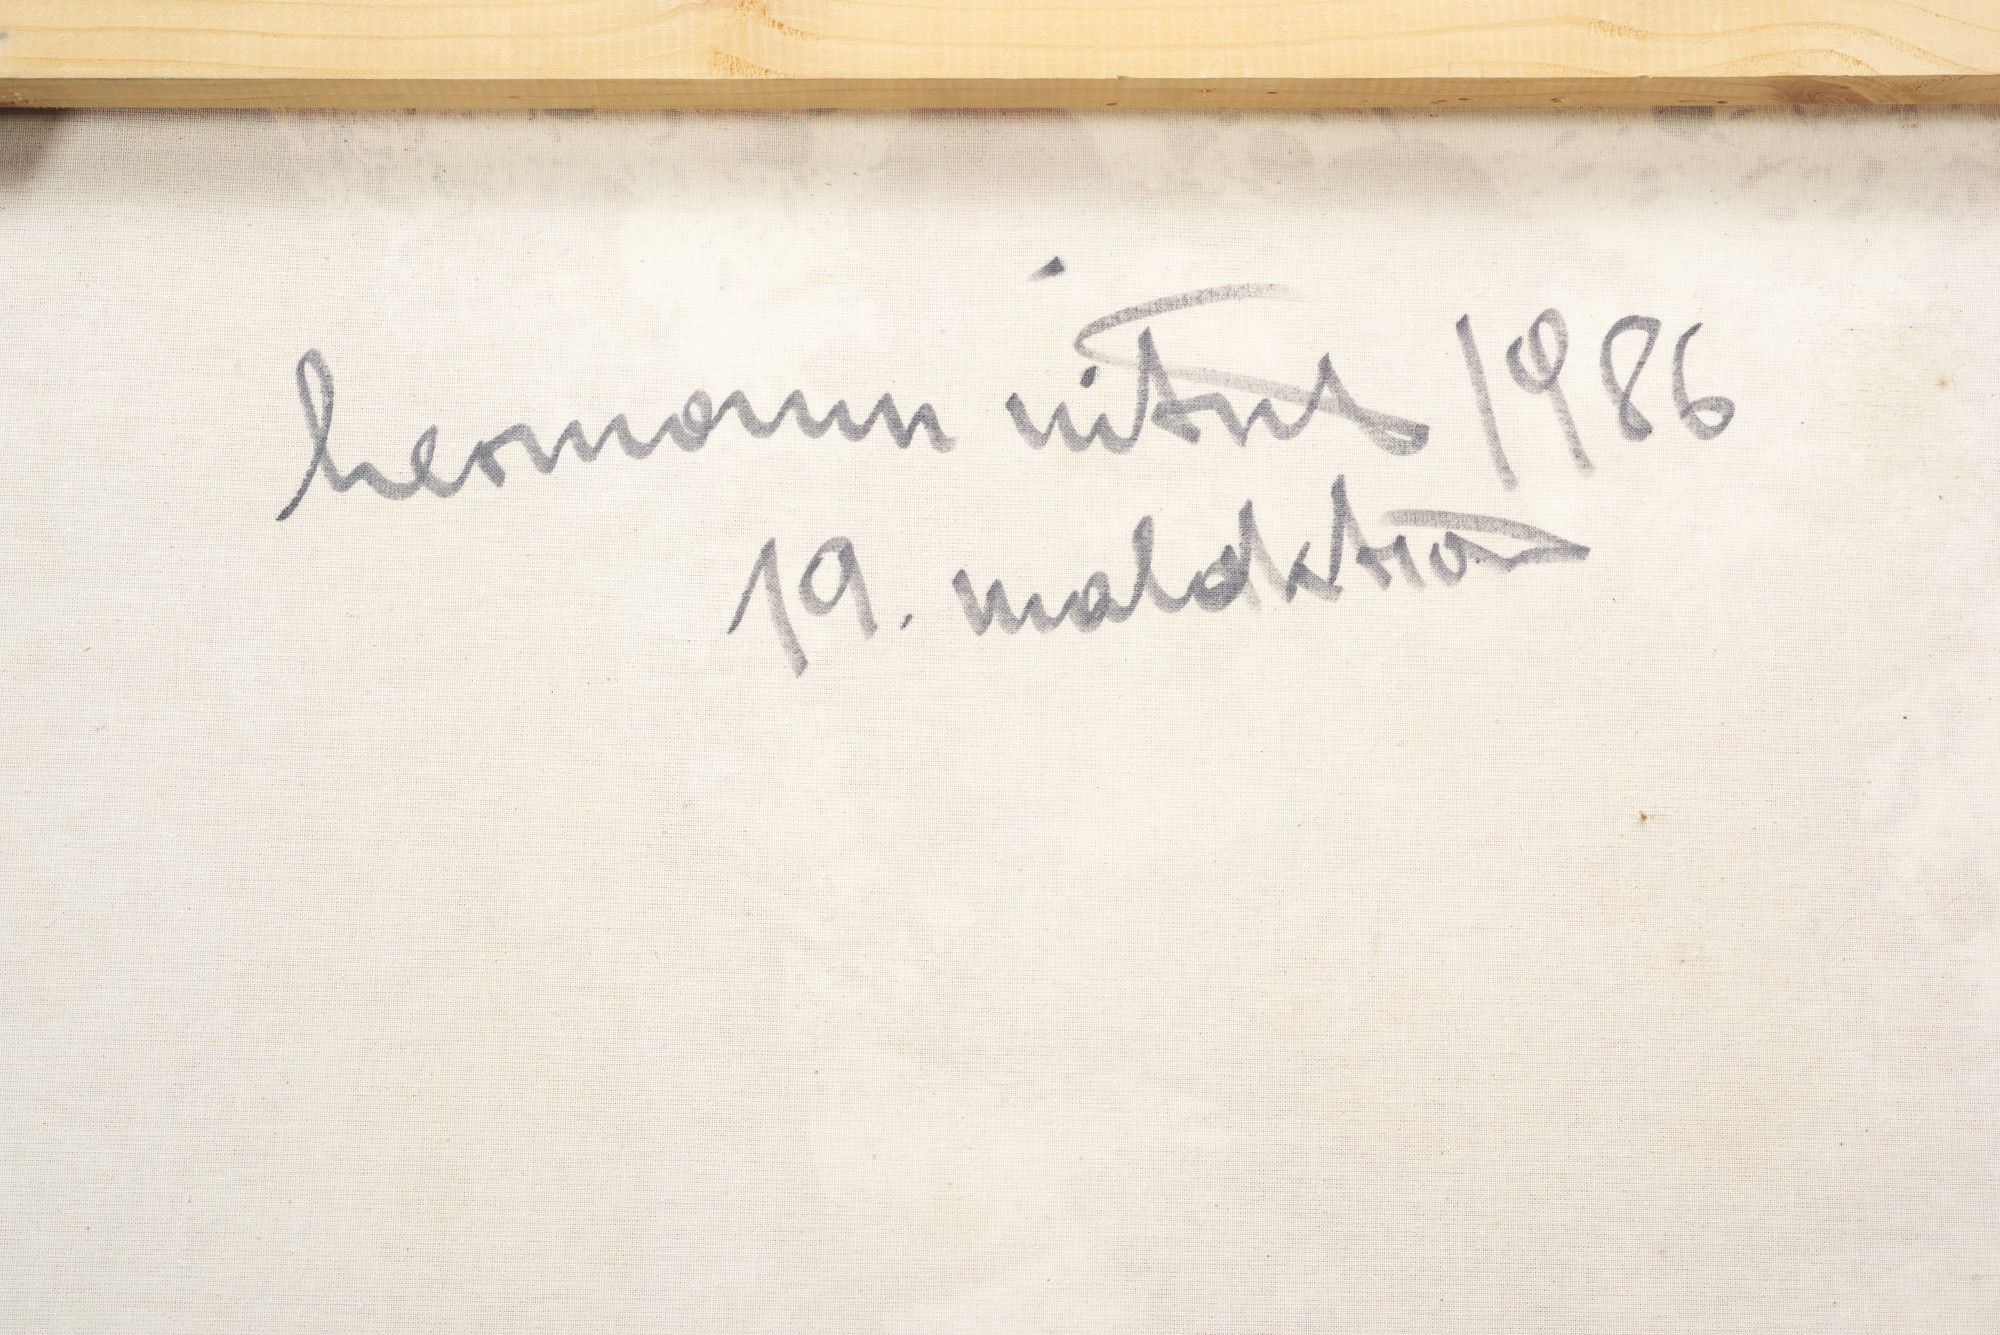 hermann nitsch 1986
19. malaktion